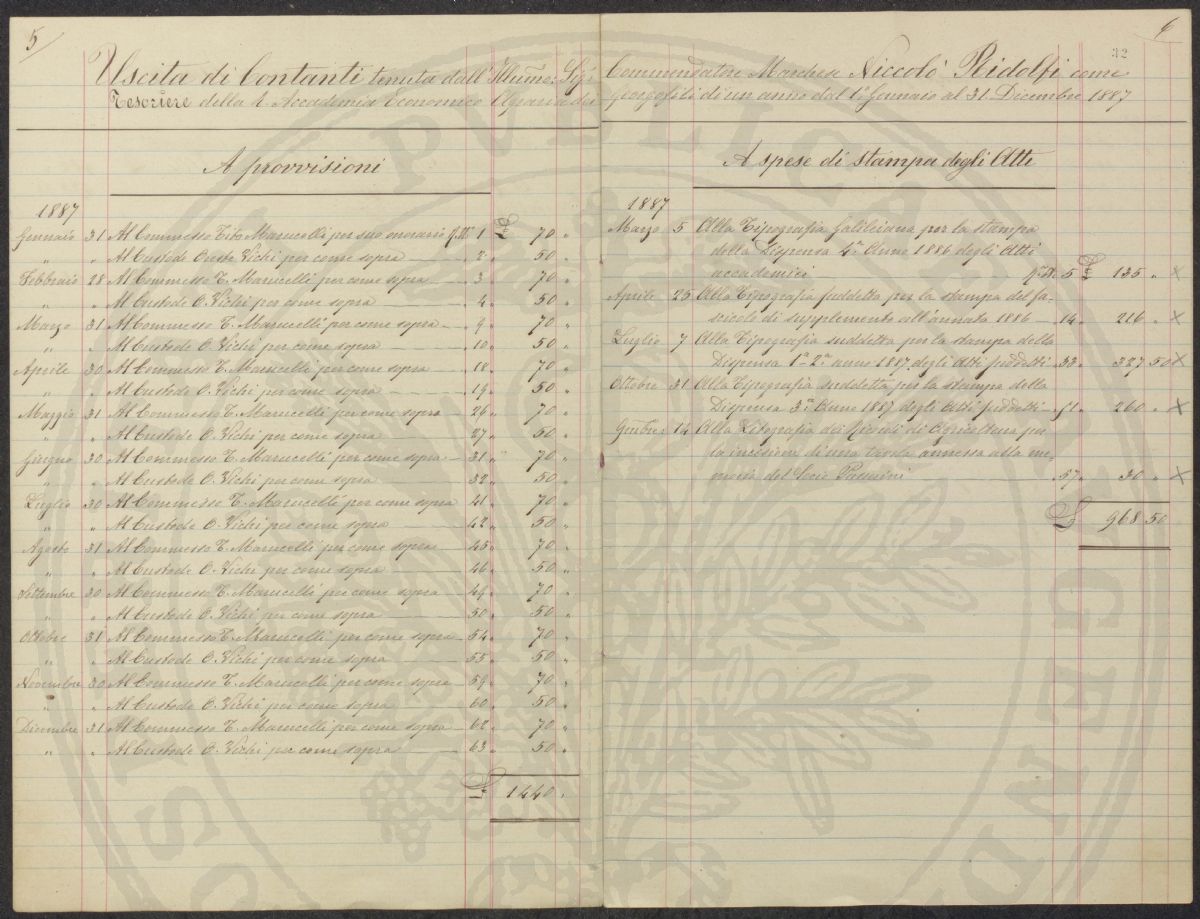 5
Uscita di Contanti tenuta dall' Illumo: Sigr:
Tesoriere della R. Accademia Economico Agraria dei
A provvisioni
1887
Gennaio 31 Al Commesso Tito Marucelli per suo onorario 1 £ 70 "
" " Al Custode Oreste Vichi per come sopra 2 " 50 "
Febbraio 28 Al Commesso T. Marucelli per come sopra 3 " 70 "
" " Al Custode O. Vichi per come sopra 4 " 50 "
Marzo 31 Al Commesso T. Marucelli per come sopra 9 " 70 "
" " Al Custode O. Vichi per come sopra 10 " 50 "
Aprile 30 Al Commesso T. Marucelli per come sopra 18 " 70 "
" " Al Custode O. Vichi per come sopra 19 " 50 "
Maggio 31 Al Commesso T. Marucelli per come sopra 26 " 70 "
" " Al Custode O. Vichi per come sopra 27 " 50 "
Giugno 30 Al Commesso T. Marucelli per come sopra 31 " 70 "
" " Al Custode O. Vichi per come sopra 32 " 50 "
Luglio 30 Al Commesso T. Marucelli per come sopra 41 " 70 "
" " Al Custode O. Vichi per come sopra 42 " 50 "
Agosto 31 Al Commesso T. Marucelli per come sopra 45 " 70 "
" " Al Custode O. Vichi per come sopra 46 " 50 "
Settembre 30 Al Commesso T. Marucelli per come sopra 49 " 70 "
" " Al Custode O. Vichi per come sopra 50 " 50 "
Ottobre 31 Al Commesso T. Marucelli per come sopra 54 " 70 "
" " Al Custode O. Vichi per come sopra 55 " 50 "
Novembre 30 Al Commesso T. Marucelli per come sopra 59 " 70 "
" " Al Custode O. Vichi per come sopra 60 " 50 "
Dicembre 31 Al Commesso T. Marucelli per come sopra 62 " 70 "
" " Al Custode O. Vichi per come sopra 63 " 50 "
£ 1440 "
6
32
Commendatore Marchese Niccolò Ridolfi come
Georgofili di un anno dal 1° Gennaio al 31 Dicembre 1887
A spese di stampa degli Atti
1887
Marzo 5 Alla Tipografia Galileiana per la stampa
della Dispensa 4a Anno 1886 degli Atti
accademici 5 £ 135 " X
Aprile 25 Alla Tipografia suddetta per la stampa del fa-
scicolo di supplemento all'annata 1886 14 " 216 " X
Luglio 7 Alla Tipografia suddetta per la stampa della
Dispensa 1a 2a anno 1887 degli Atti suddetti 33 " 327 50 X
Ottobre 31 Alla Tipografia suddetta per la stampa della
Dispensa 3a Anno 1887 degli Atti suddetti 51 " 260 " X
9mbre: 14 Alla Litografia dei di Agricoltura per
la incisione di una tavola annessa alla me-
moria del Socio Passerini 57 " 30 " X
£ 968 50